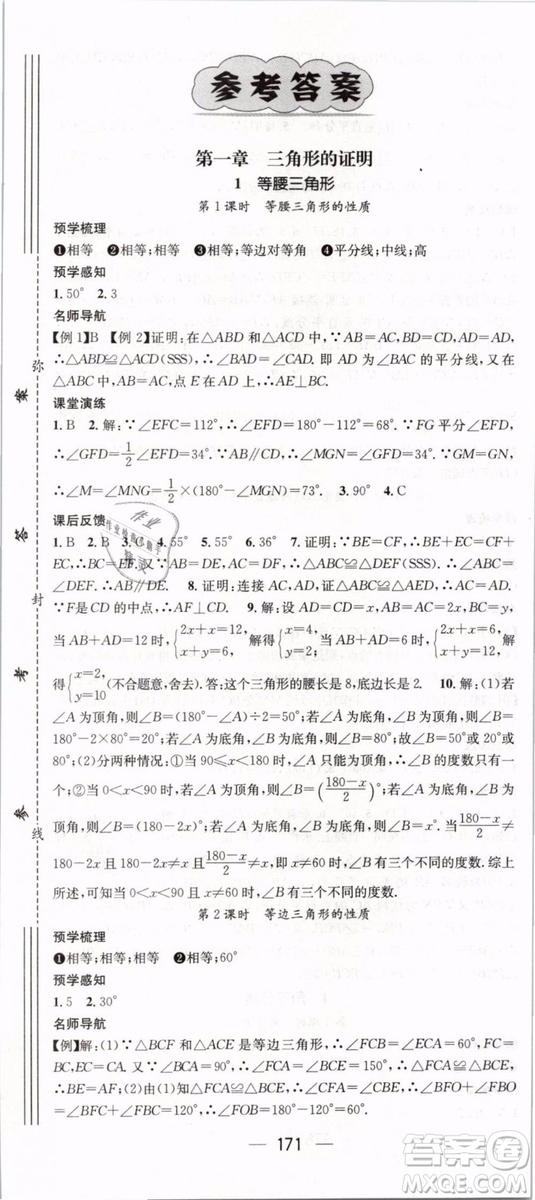 参考答案
第一章 三角形的证明
1 等腰三角形
第1课时 等腰三角形的性质
预学梳理
❶相等 ❷相等;相等 ❸相等;等边对等角 ❹平分线;中线;高
预学感知
1.50° 2.3
名师导航
【例1】B 【例2】证明:在△ABD和△ACD中,∵AB=AC,BD=CD,AD=AD,
∴△ABD≌△ACD(SSS).∴∠BAD=∠CAD.即AD为∠BAC的平分线,又∵在△ABC中,AB=AC,点E在BC上,∴AE⊥BC.
课堂演练
1.B 2.解:∵∠EFC=112°,∴∠EFD=180°-112°=68°.∵FG平分∠EFD,
∴∠GFD=1/2∠EFD=34°.∵AB∥CD,∴∠MGN=∠GFD=34°.∵GM=GN,
∴∠M=∠MNG=1/2×(180°-∠MGN)=73°. 3.90° 4.C
课后反馈
1.B 2.B 3.C 4.55° 5.55° 6.36° 7.证明:∵BE=CF,∴BE+EC=CF+
∠DEF.∴AB∥DE. 8.证明:连接AC,AD.∵AB=AE,∠B=∠E,BC=ED,∴△ABC≌△AED.∴AC=AD.
∵F是CD的中点,∴AF⊥CD. 9.解:设AD=CD=x,∴AB=AC=2x,BC=y,
当AB+AD=12时,{2x+x=12, x+y=6, 解得{x=4, y=2;当AB+AD=6时,{2x+x=6, x+y=12, 解
得{x=2, y=10(不合题意,舍去).答:这个三角形的腰长是8,底边长是2. 10.解:(1)若
∠A为顶角,则∠B=(180°-∠A)÷2=50°;若∠A为底角,∠B为顶角,则∠B=180°-2×80°=20°;若∠A为底角,∠B为底角,则∠B=80°.故∠B=50°或20°或
80°;(2)分两种情况:①当90≤x<180时,∠A只能为顶角,∴∠B的度数只有一个;
②当0<x<90时,若∠A为顶角,则∠B=((180-x)/2)°;若∠A为底角,∠B为
顶角,则∠B=(180-2x)°;若∠A为底角,∠B为底角,则∠B=x°.当(180-x)/2≠
180-2x且180-2x≠x且(180-x)/2≠x,即x≠60时,∠B有三个不同的度数.综上
所述,可知当0<x<90且x≠60时,∠B有三个不同的度数.
第2课时 等边三角形的性质
预学梳理
❶相等;相等;相等 ❷相等;60°
预学感知
1.5 2.30°
名师导航
【例】解:(1)∵△BCF和△ACE是等边三角形,∴AC=CE,CF=BC,∠FCB=
∠ACE=60°.∴∠ACB=∠FCE.∴△ABC≌△EFC(SAS).∴AB=FE,
∴BE=AF;(2)由(1)知△ABC≌△EFC,∴∠CFA=∠CBE=60°,又∵∠BFC=60°,
∴∠AFB=∠BFC+∠CFA=120°,∴∠AFB的度数为120°.
171
弥
封
线
参
考
答
案
作业
答案卷